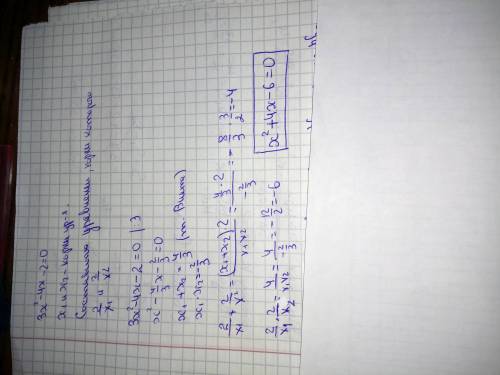 3x²-4x-2=0
x₁ и x₂ - корни ур-я.
Составляем уравнение, корни которого
2/x₁ и 2/x₂
3x²-4x-2=0 | 3
x² - 4/3 x - 2/3 = 0
x₁ + x₂ = 4/3 (т. Виета)
x₁ · x₂ = -2/3
2/x₁ + 2/x₂ = (x₁+x₂)·2/x₁x₂ = 4/3 · 2/-2/3 = -8/3 · 3/2 = -4
2/x₁ · 2/x₂ = 4/x₁x₂ = 4/-2/3 = -12/2 = -6
x²+4x-6=0